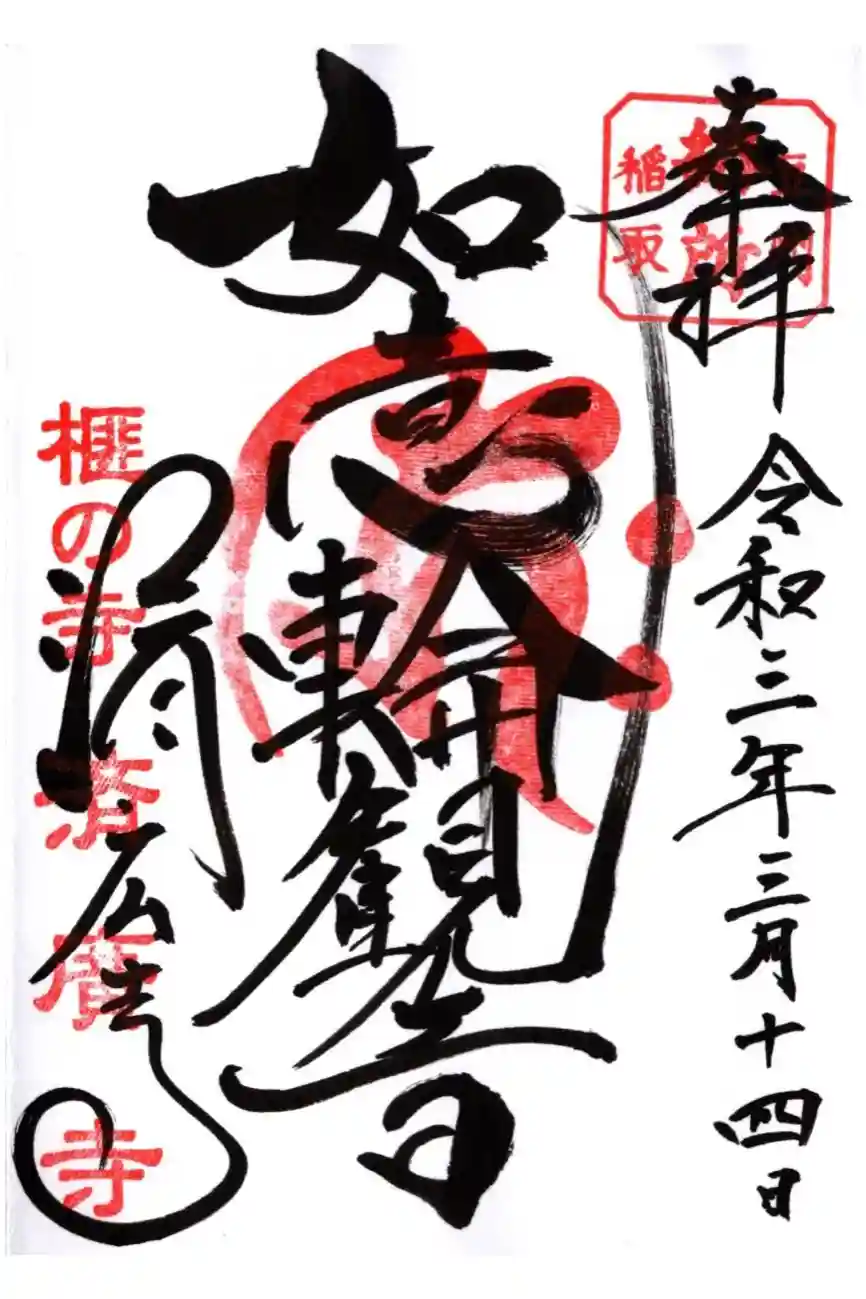 奉拝
令和三年三月十四日
稲取
如意輪観音
済広寺
榧の寺 済廣寺